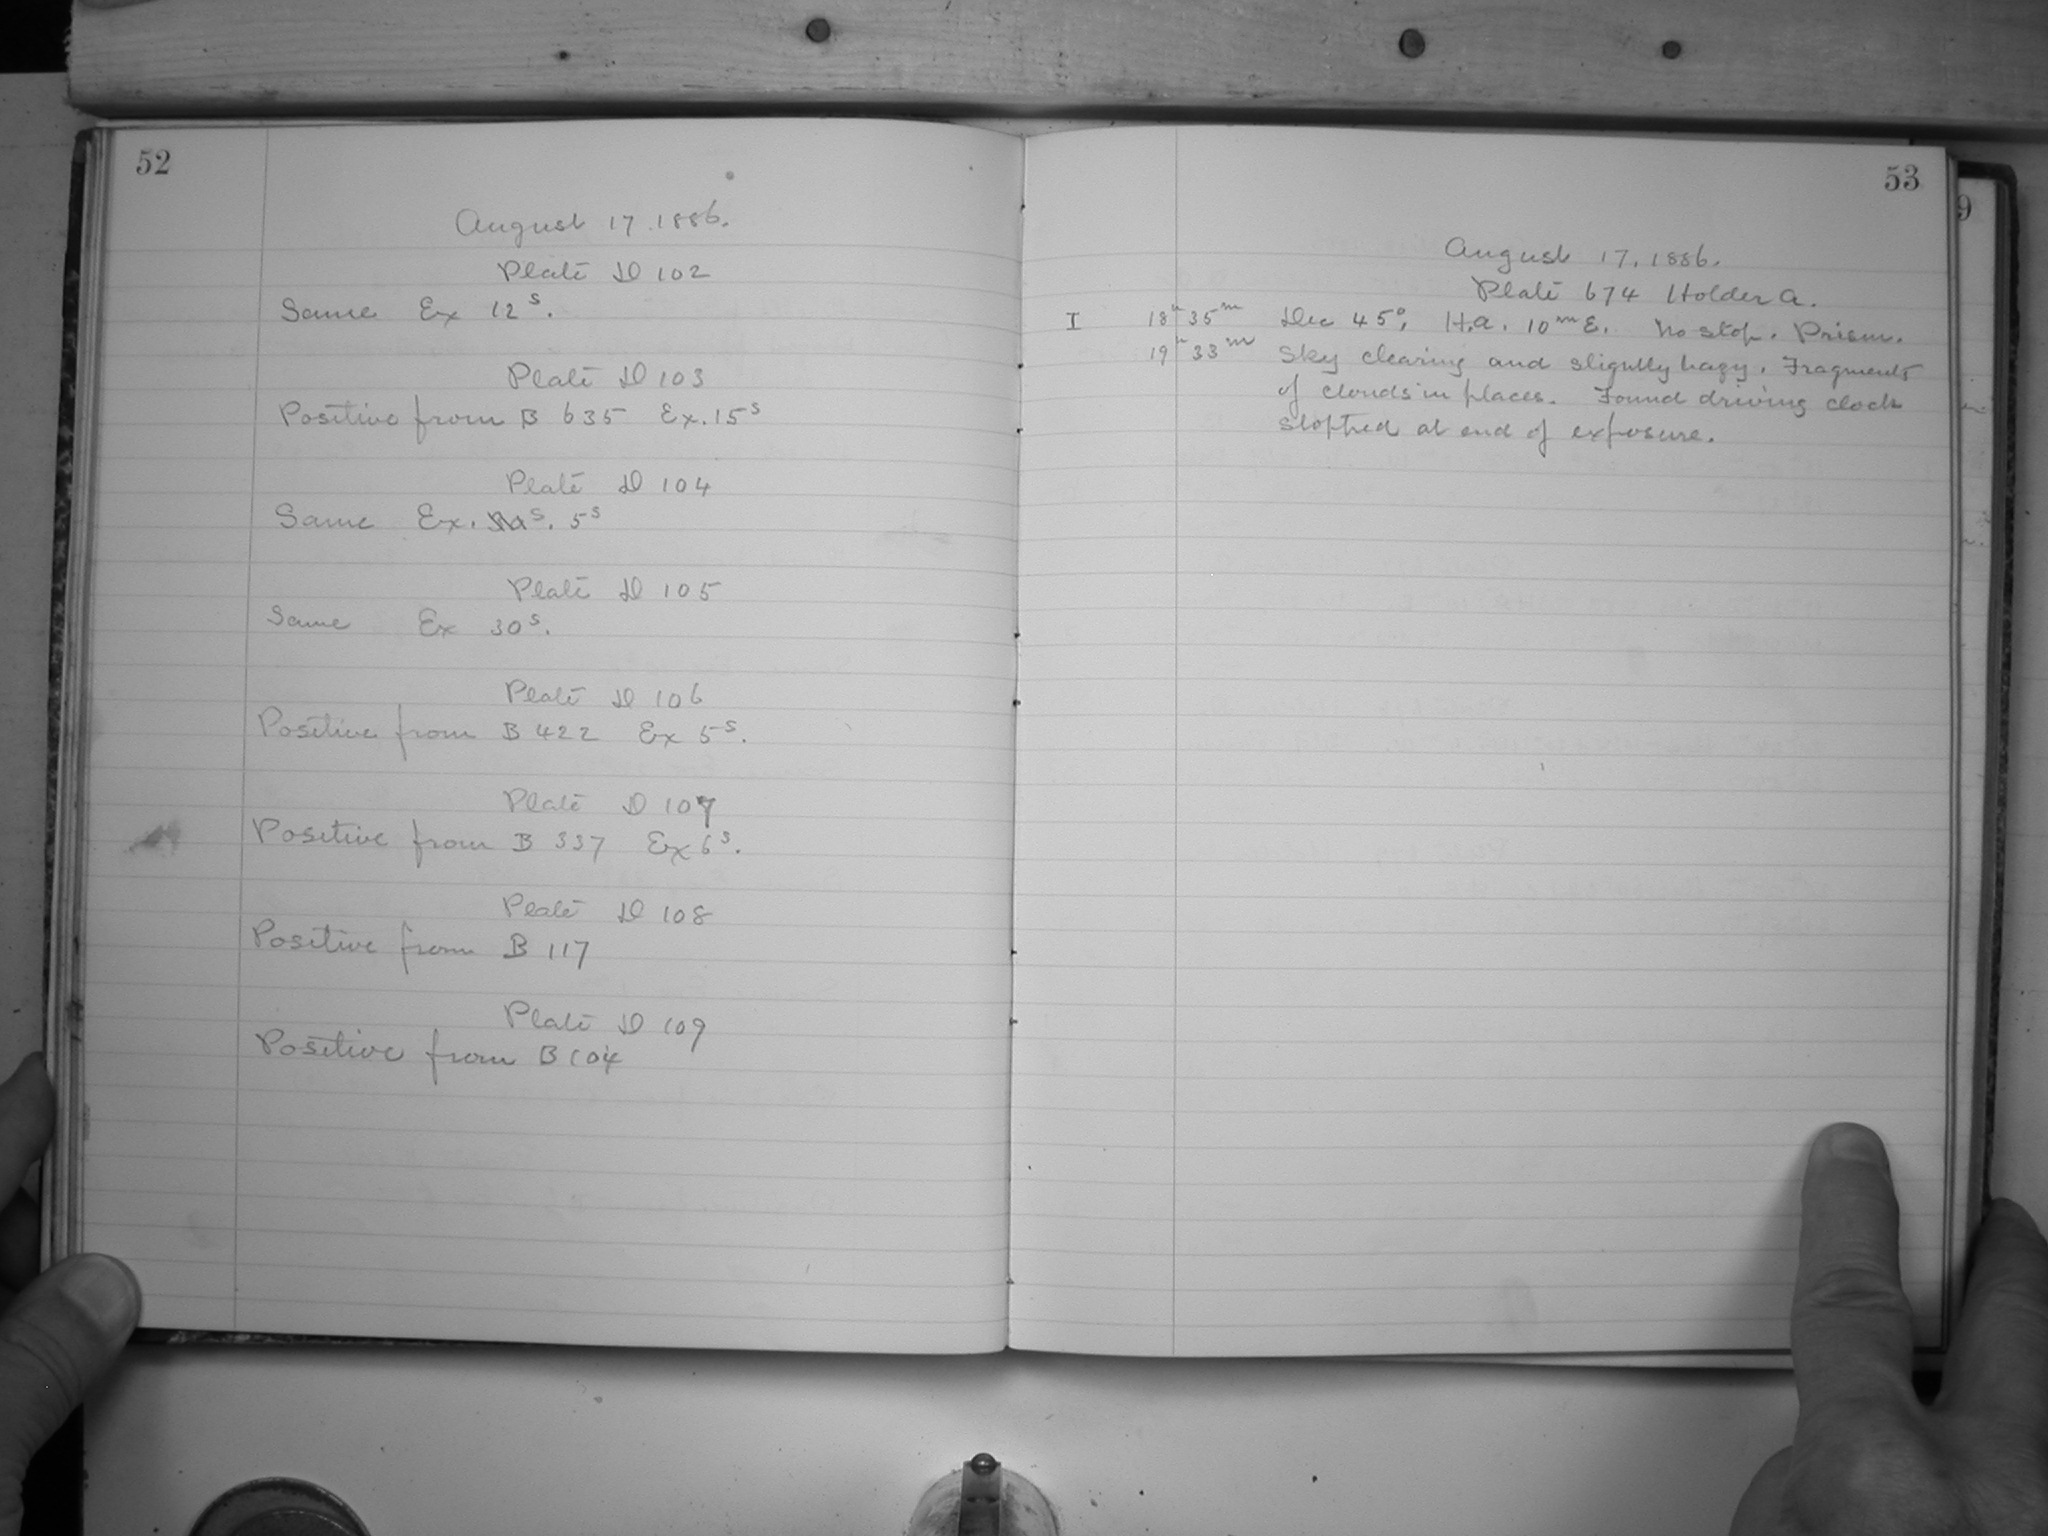 52
August 17. 1886.
Plate D 102
Same Ex 12s.
Plate D 103
Positive from B 635 Ex. 15s
Plate D 104
Same Ex. s. 5s
Plate D 105
Same Ex 30s.
Plate D 106
Positive from B 422 Ex 5s.
Plate D 107
Positive from B 337 Ex 6s.
Plate D 108
Positive from B 117
Plate D 109
Positive from B 104
53
August 17. 1886.
Plate 674 Holder A.
I 18h 35m Dec 45°, H.A. 10m E. No stop. Prism.
19h 33m Sky clearing and slightly hazy. Fragments
of clouds in places. Found driving clock
stopped at end of exposure.
9